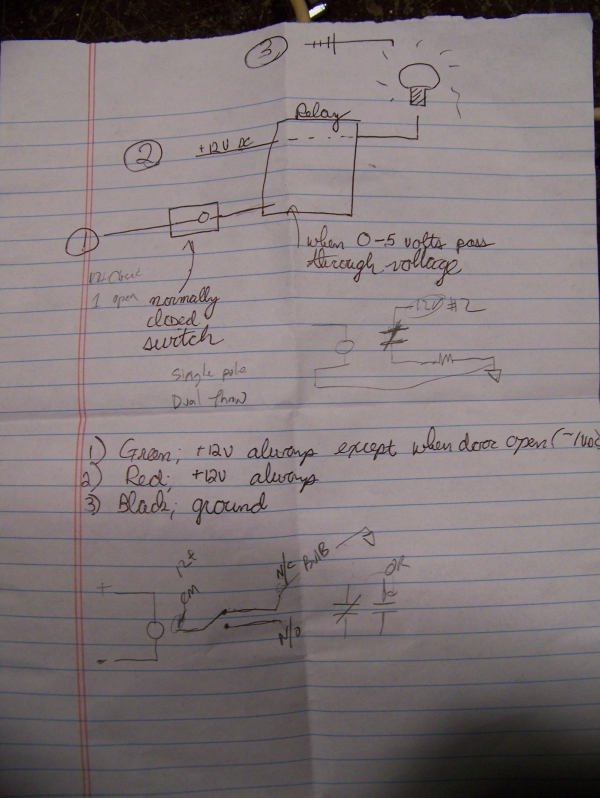 3
Relay
2 +12V DC
1
when 0-5 volts pass
through voltage
1 open
normally
closed
switch
12V #2
Single pole
Dual Throw
1) Green; +12V always except when door open (~1volt
2) Red; +12V always
3) Black; ground
+
-
CM
N/C
BulB
N/O
OR